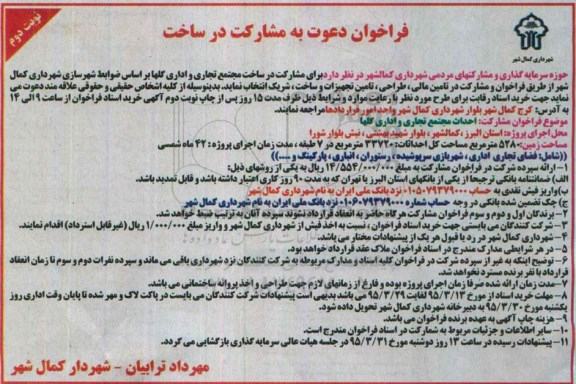 نوبت دوم
فراخوان دعوت به مشارکت در ساخت
شهرداری کمال شهر
حوزه سرمایه گذاری و مشارکتهای مردمی شهرداری کمالشهر در نظر دارد برای مشارکت در ساخت مجتمع تجاری و اداری گلها بر اساس ضوابط شهرسازی شهرداری کمال
شهر از طریق فراخوان و مشارکت در تامین مالی، طراحی، تامین تجهیزات و ساخت، شریک انتخاب نماید، بدینوسیله از کلیه اشخاص حقیقی و حقوقی علاقه مند دعوت می
نماید جهت خرید اسناد رقابت برای طرح مورد نظر با رعایت موارد و شرایط ذیل ظرف مدت ۱۵ روز پس از چاپ نوبت دوم آگهی خرید اسناد فراخوان از ساعت ۹ الی ۱۴
به آدرس: کرج کمال شهر بلوار شهرداری کمال شهر واحد امور قراردادها مراجعه نمایند.
موضوع فراخوان مشارکت: احداث مجتمع تجاری و اداری گلها
محل اجرای پروژه: استان البرز، کمالشهر، بلوار شهید بهشتی، نبش بلوار شورا
مساحت زمین: ۵۲۸۰ مترمربع مساحت کل احداثات: ۳۳۷۲۰ مترمربع در ۷ طبقه، مدت زمان اجرای پروژه: ۴۲ ماه شمسی
((شامل: فضای تجاری اداری، شهربازی سرپوشیده، رستوران، انباری، پارکینگ و .....))
۱- ارائه سپرده شرکت در فراخوان مشارکت به مبلغ ۱۴/۵۵۴/۰۰۰/۰۰۰ ریال به یکی از روشهای ذیل:
الف) ضمانتنامه بانکی ترجیحا از یکی از بانکهای استان البرز یا تهران که به مدت ۹۰ روز کاری اعتبار داشته باشد و قابل تمدید باشد.
ب) واریز فیش نقدی به حساب ۰۱۰۵۰۷۹۳۷۹۰۰۰ نزد بانک ملی ایران به نام شهرداری کمال شهر
ج) چک تضمین شده بانکی در وجه حساب شماره ۰۱۰۶۰۷۹۳۷۹۰۰۰ نزد بانک ملی ایران به نام شهرداری کمال شهر
۲- برندگان اول و دوم و سوم فراخوان مشارکت هرگاه حاضر به انعقاد قرارداد نشوند سپرده آنان به ترتیب ضبط خواهد شد.
۳- شرکت کنندگان می بایستی جهت خرید اسناد فراخوان، نسبت به اخذ فیش از شهرداری کمال شهر و واریز مبلغ ۱/۰۰۰/۰۰۰ ریال (غیر قابل استرداد) اقدام نمایند.
۴- شهرداری کمال شهر در رد یا قبول هر یک از پیشنهادات مختار می باشد.
۵- در هر شرایطی مدارک مندرج در اسناد فراخوان ملاک عقد قرارداد خواهد بود.
۶- توضیح اینکه به غیر از سپرده شرکت در فراخوان کلیه اسناد و مدارک مربوطه به شرکت کنندگان نزد شهرداری باقی می ماند و سپرده نفرات دوم و سوم تا زمان انعقاد
قرارداد با نفر برنده مسترد نخواهد شد.
۷- مدت زمان ارائه شده صرفا زمان اجرای پروژه بوده و فارغ از زمانهای لازم جهت طراحی و اخذ پروانه ساختمانی می باشد.
۸- مهلت خرید اسناد از مورخ ۹۵/۳/۱۳ لغایت ۹۵/۳/۲۹ می باشد بدیهی است پیشنهادات شرکت کنندگان می بایست در پاکت لاک و مهر شده تا پایان وقت اداری روز
یکشنبه مورخ ۹۵/۳/۳۰ به دبیرخانه شهرداری کمال شهر تحویل داده شود.
۹- هزینه چاپ آگهی به عهده برنده فراخوان می باشد.
۱۰- سایر اطلاعات و جزئیات مربوط به شرکت در اسناد فراخوان مندرج است.
۱۱- پیشنهادات رسیده در ساعت ۱۳ روز دوشنبه مورخ ۹۵/۳/۳۱ در جلسه هیات عالی سرمایه گذاری بازگشایی می گردد.
مهرداد ترابیان - شهردار کمال شهر